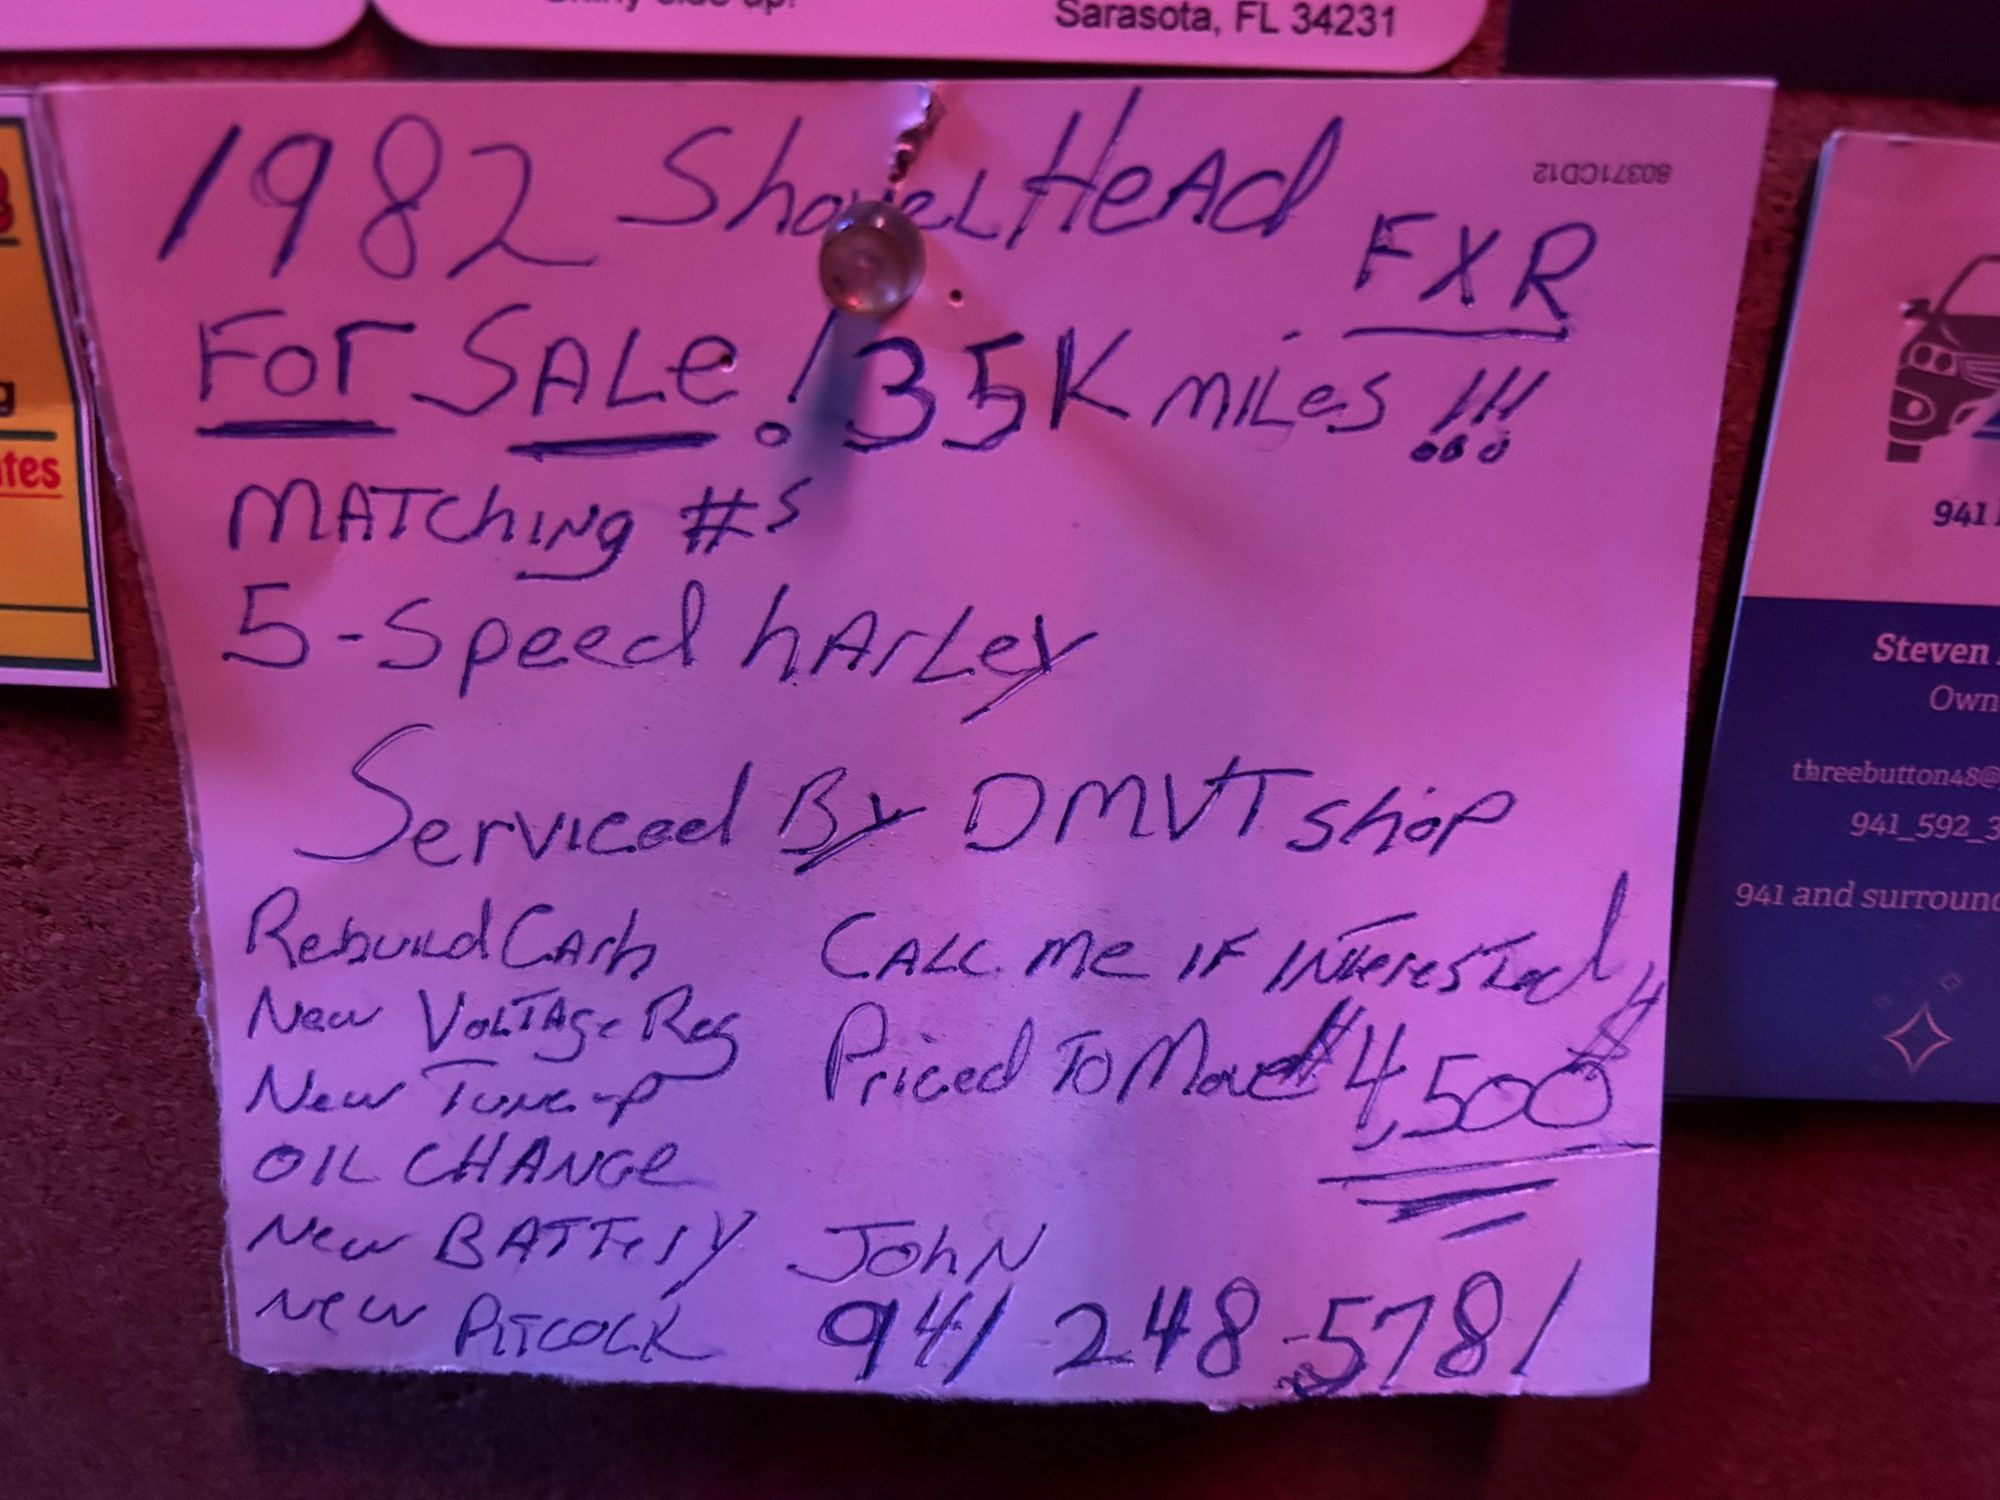 Sarasota, FL 34231
80371CD12
1982 ShovelHeAd
FXR
For SALe! 35K miles!!!
MATChing #s
5-Speed hArLey
Serviced By DMVT shop
Rebuild Carb
New VoLTAge Reg
New Tune-up
OIL CHANGe
New BATTery
New PiTCOCK
CALL me IF InTeresTed
Priced To Move $4,500
JohN
941 248-5781
tes
941
Steven
Own
threebutton48@
941_592_3
941 and surround